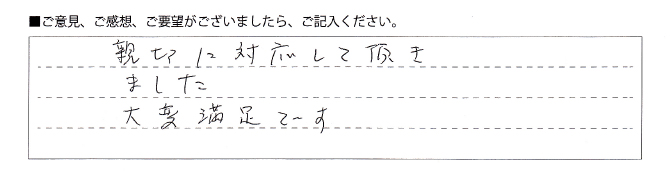 ■ご意見、ご感想、ご要望がございましたら、ご記入ください。
親切に対応して頂き
ました
大変満足です